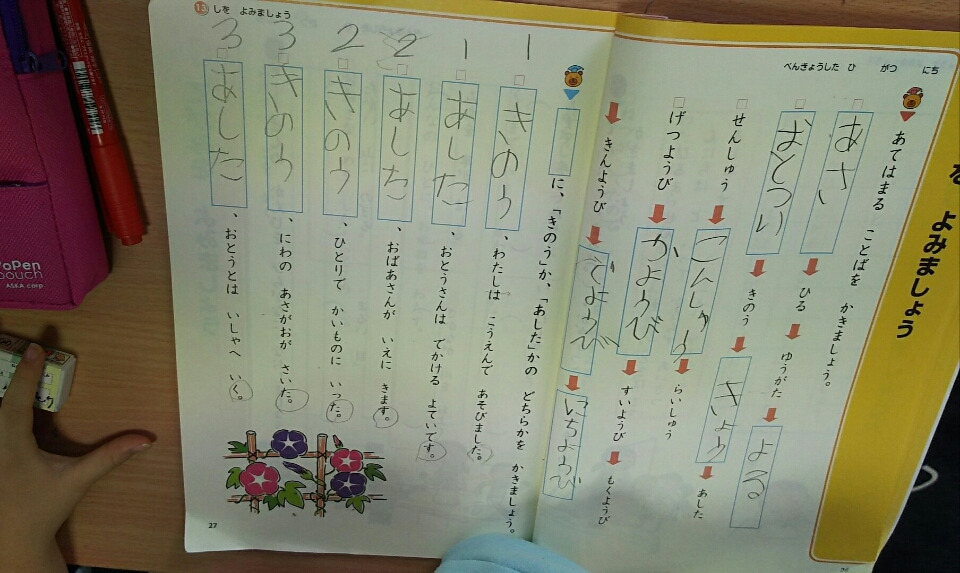 を よみましょう
べんきょうした ひ がつ にち
あてはまる ことばを かきましょう。
あさ ひる ゆうがた よる
おとつい きのう きょう あした
せんしゅう こんしゅう らいしゅう
げつようび かようび すいようび もくようび
きんようび どようび にちようび
に、「きのう」か、「あした」かの どちらかを かきましょう。
1 きのう、わたしは こうえんで あそびました。
1 あした、おとうさんは でかける よていです。
2 あした、おばあさんが いえに きます。
2 きのう、ひとりで かいものに いった。
3 きのう、にわの あさがおが さいた。
3 あした、おとうとは いしゃへ いく。
13 しを よみましょう
27
YoPen
pouch
ASKA corp